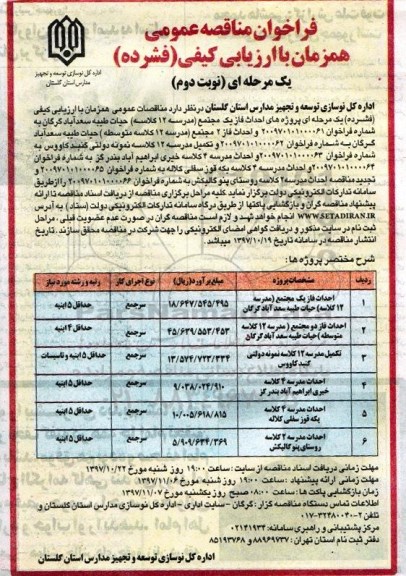 فراخوان مناقصه عمومی
همزمان با ارزیابی کیفی (فشرده)
یک مرحله ای (نوبت دوم)
اداره کل نوسازی توسعه و تجهیز
مدارس استان گلستان
اداره کل نوسازی توسعه و تجهیز مدارس استان گلستان درنظر دارد مناقصات عمومی همزمان با ارزیابی کیفی
(فشرده) یک مرحله ای پروژه های احداث فاز یک مجتمع (مدرسه ۱۲ کلاسه) حیات طیبه سعدآباد گرگان به
شماره فراخوان ۲۰۰۹۷۰۱۰۱۰۰۰۰۶۱ و احداث فاز ۲ مجتمع (مدرسه ۱۲ کلاسه متوسطه) حیات طیبه سعدآباد
گرگان به شماره فراخوان ۲۰۰۹۷۰۱۰۱۰۰۰۰۶۲ و تکمیل مدرسه ۱۲ کلاسه نمونه دولتی گنبد کاووس به
شماره فراخوان ۲۰۰۹۷۰۱۰۱۰۰۰۰۶۳ و احداث مدرسه ۴ کلاسه خیری ابراهیم آباد بندر گز به شماره فراخوان
۲۰۰۹۷۰۱۰۱۰۰۰۰۶۴ و احداث مدرسه ۴ کلاسه یکه قوز سفلی کلاله به شماره فراخوان ۲۰۰۹۷۰۱۰۱۰۰۰۰۶۵ و
تجدید مناقصه احداث مدرسه ۲ کلاسه روستای پنو گالیکش به شماره فراخوان ۲۰۰۹۷۰۱۰۱۰۰۰۰۶۶ را از طریق
سامانه تدارکات الکترونیکی دولت برگزار نماید کلیه مراحل برگزاری مناقصه از دریافت اسناد مناقصه تا ارائه
پیشنهاد مناقصه گران و بازگشایی پاکتها از طریق درگاه سامانه تدارکات الکترونیکی دولت (ستاد) به آدرس
WWW.SETADIRAN.IR انجام خواهد شد و لازم است مناقصه گران در صورت عدم عضویت قبلی، مراحل
ثبت نام در سایت مذکور و دریافت گواهی امضای الکترونیکی را جهت شرکت در مناقصه محقق سازند. تاریخ
انتشار مناقصه در سامانه تاریخ ۱۳۹۷/۱۰/۱۹ میباشد.
شرح مختصر پروژه ها:
ردیف مشخصات پروژه مبلغ برآورد(ریال) نوع اجرای کار رتبه و رشته مورد نیاز
۱ احداث فاز یک مجتمع (مدرسه ۱۲ کلاسه) حیات طیبه سعدآباد گرگان ۱۸/۶۴۷/۵۴۵/۴۹۵ سرجمع حداقل ۵ ابنیه
۲ احداث فاز دو مجتمع (مدرسه ۱۲ کلاسه متوسطه) حیات طیبه سعدآباد گرگان ۴۵/۶۳۹/۵۵۳/۴۵۳ سرجمع حداقل ۴ ابنیه
۳ تکمیل مدرسه ۱۲ کلاسه نمونه دولتی گنبد کاووس ۱۳/۵۷۴/۷۲۳/۳۳۴ سرجمع حداقل ۵ ابنیه و تاسیسات
۴ احداث مدرسه ۴ کلاسه خیری ابراهیم آباد بندر گز ۹/۰۳۸/۰۲۴/۹۱۰ سرجمع حداقل ۵ ابنیه
۵ احداث مدرسه ۴ کلاسه یکه قوز سفلی کلاله ۱۰/۰۰۵/۶۱۸/۸۱۵ سرجمع حداقل ۵ ابنیه
۶ احداث مدرسه ۲ کلاسه روستای پنو گالیکش ۵/۹۰۹/۶۳۴/۳۶۹ سرجمع حداقل ۵ ابنیه
مهلت زمانی دریافت اسناد مناقصه از سایت: ساعت ۱۹:۰۰ روز شنبه مورخ ۱۳۹۷/۱۰/۲۲
مهلت زمانی ارائه پیشنهاد: ساعت ۱۹:۰۰ روز شنبه مورخ ۱۳۹۷/۱۱/۰۶
زمان بازگشایی پاکت ها: ساعت ۰۸:۰۰ صبح روز یکشنبه مورخ ۱۳۹۷/۱۱/۰۷
اطلاعات تماس دستگاه مناقصه گزار: گرگان - سایت اداری - اداره کل نوسازی مدارس استان گلستان و
تلفن ۲-۰۱۷۳۲۴۸۰۰۴۰
مرکز پشتیبانی و راهبری سامانه: ۰۲۱۴۱۹۳۴
دفتر ثبت نام استان تهران: ۸۸۹۶۹۷۳۷ و ۸۵۱۹۳۷۶۸
اداره کل نوسازی توسعه و تجهیز مدارس استان گلستان